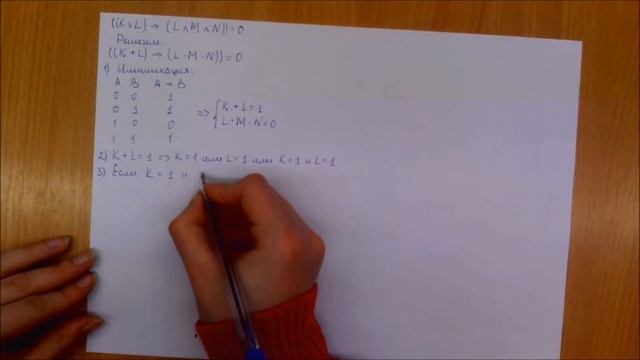 ((K∨L) → (L∧M∧N))=0
Решение:
((K+L) → (L·M·N))=0
1) Импликация:
A B A→B
0 0 1
0 1 1
1 0 0
1 1 1
=> { K+L=1
L·M·N=0
2) K+L=1 => K=1 или L=1 или K=1 и L=1
3) Если K=1 и